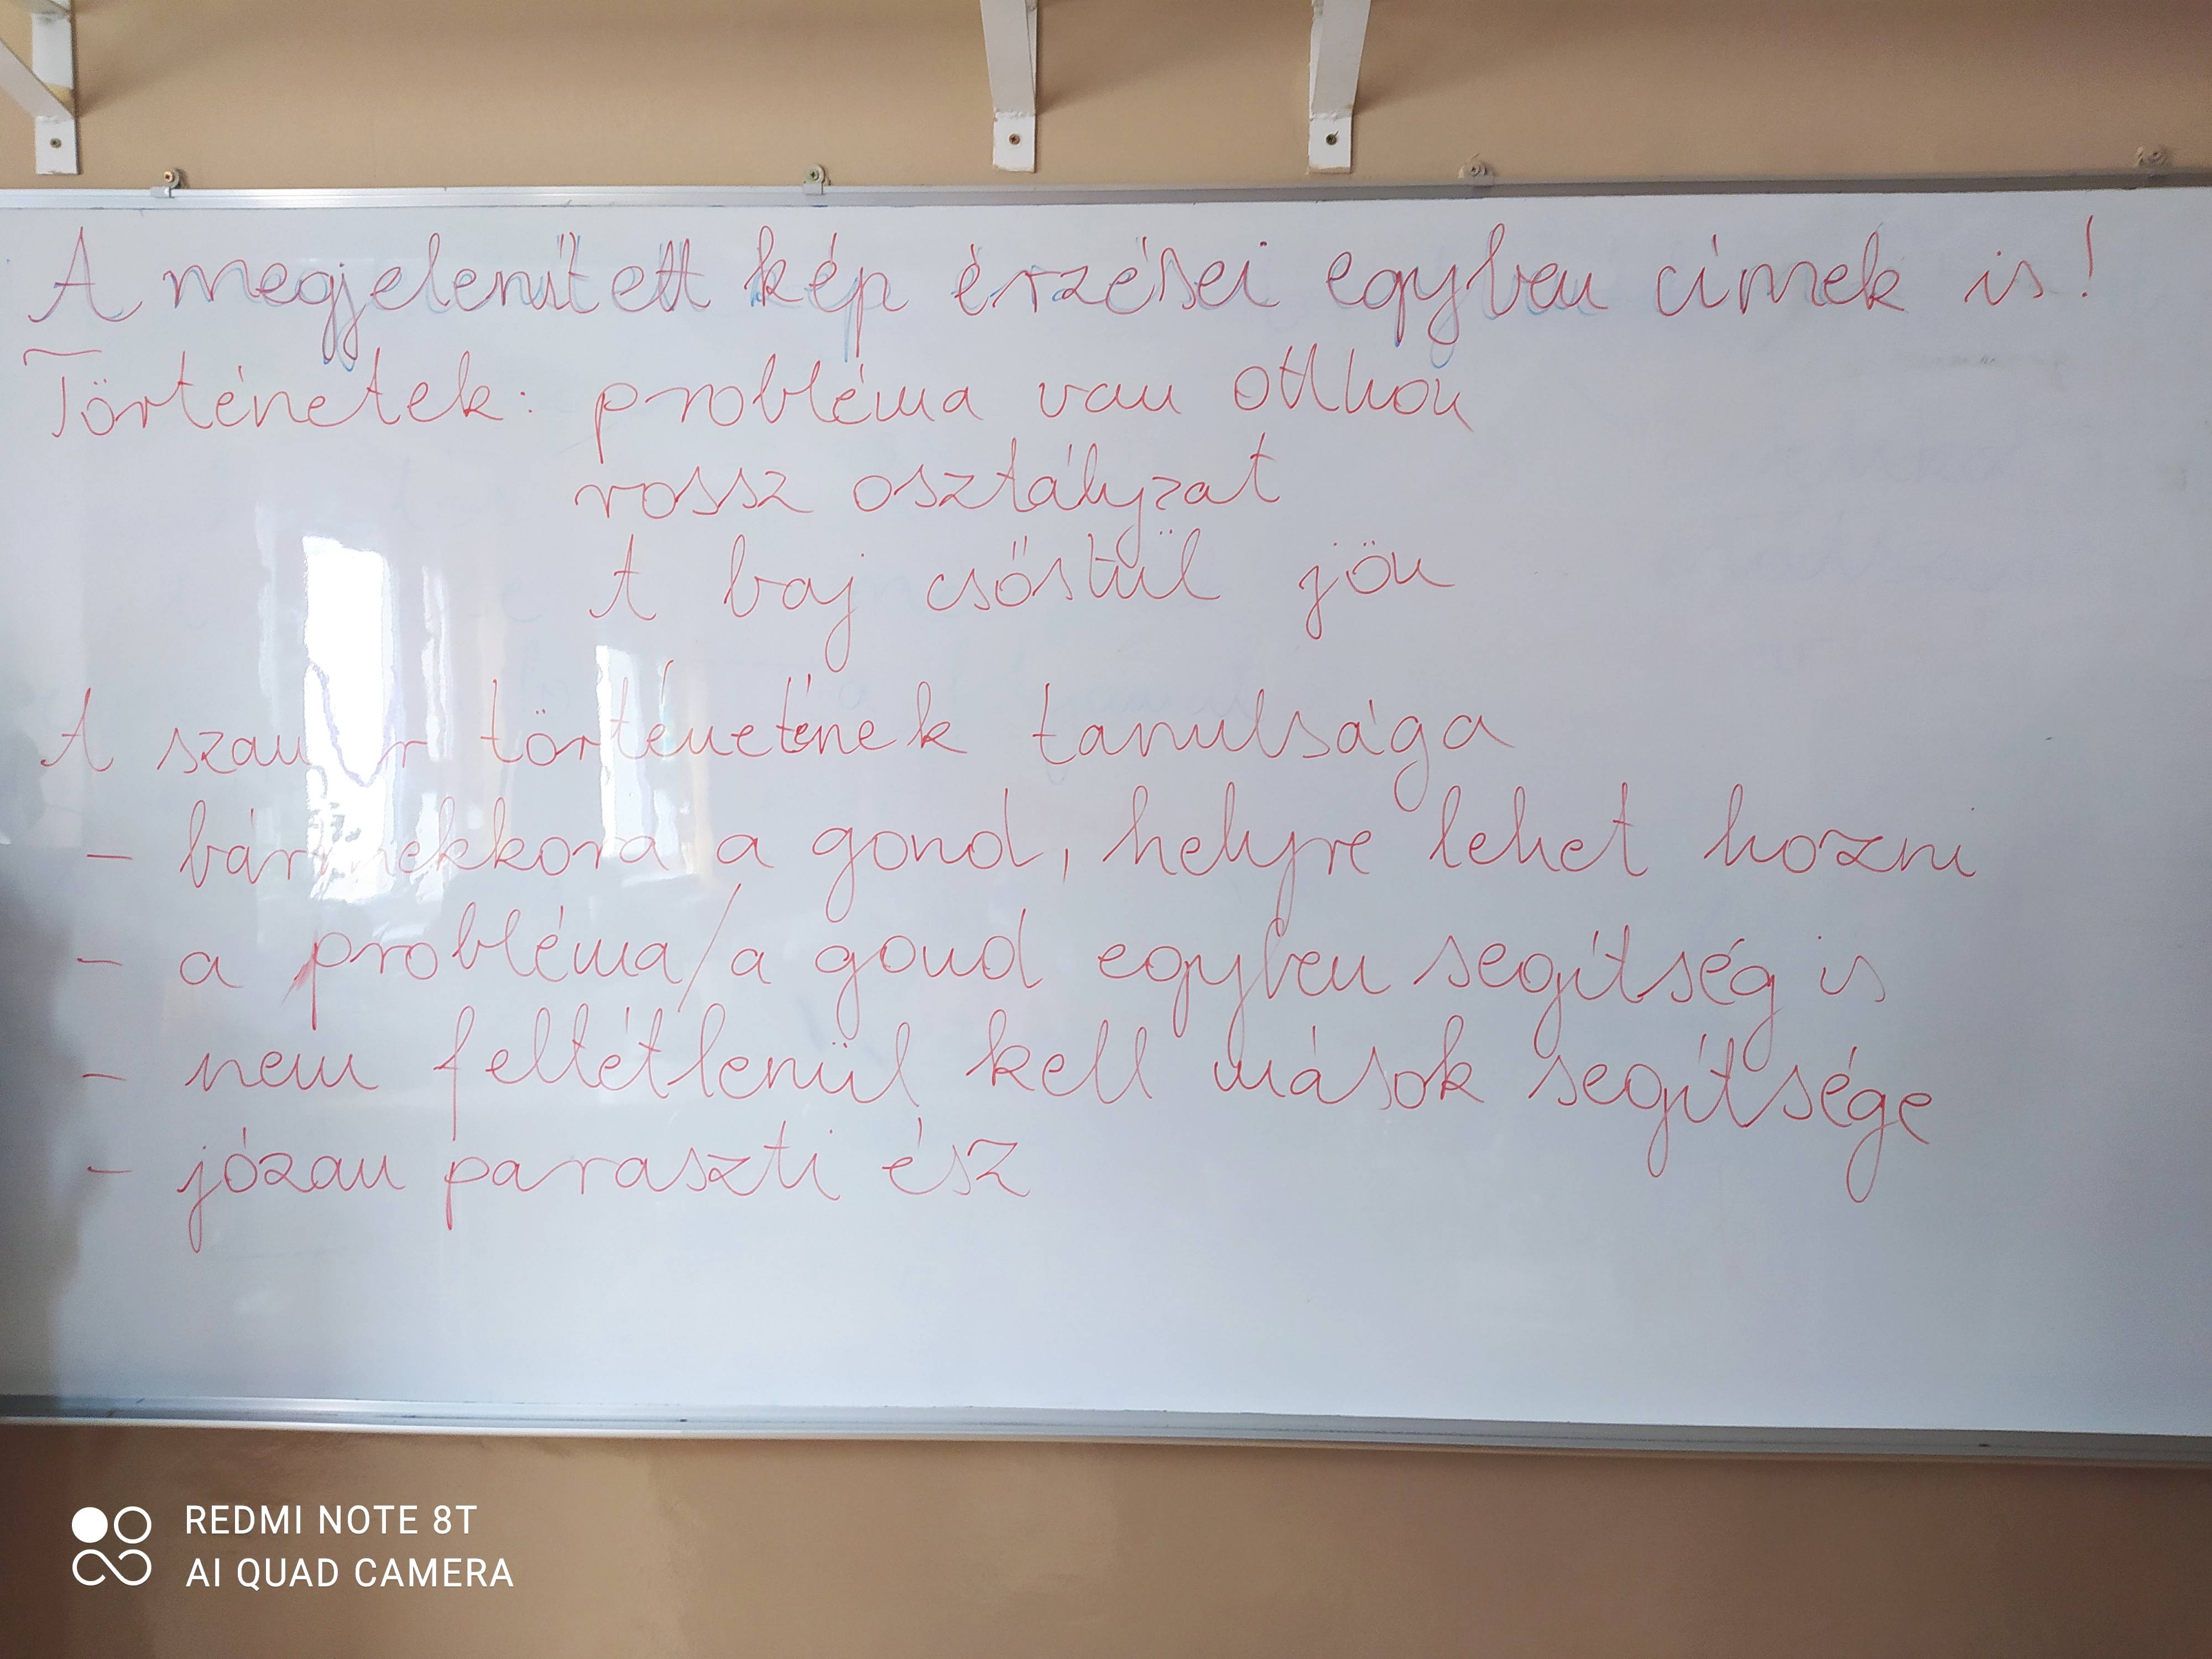 A megjelenített kép érzései egyben címek is!
Történetek: probléma van otthon
rossz osztályzat
A baj csőstül jön
A történetének tanulsága
- bármekkora a gond, helyre lehet hozni
- a probléma/a gond egyben segítség is
- nem feltétlenül kell mások segítsége
- józan paraszti ész
REDMI NOTE 8T
AI QUAD CAMERA